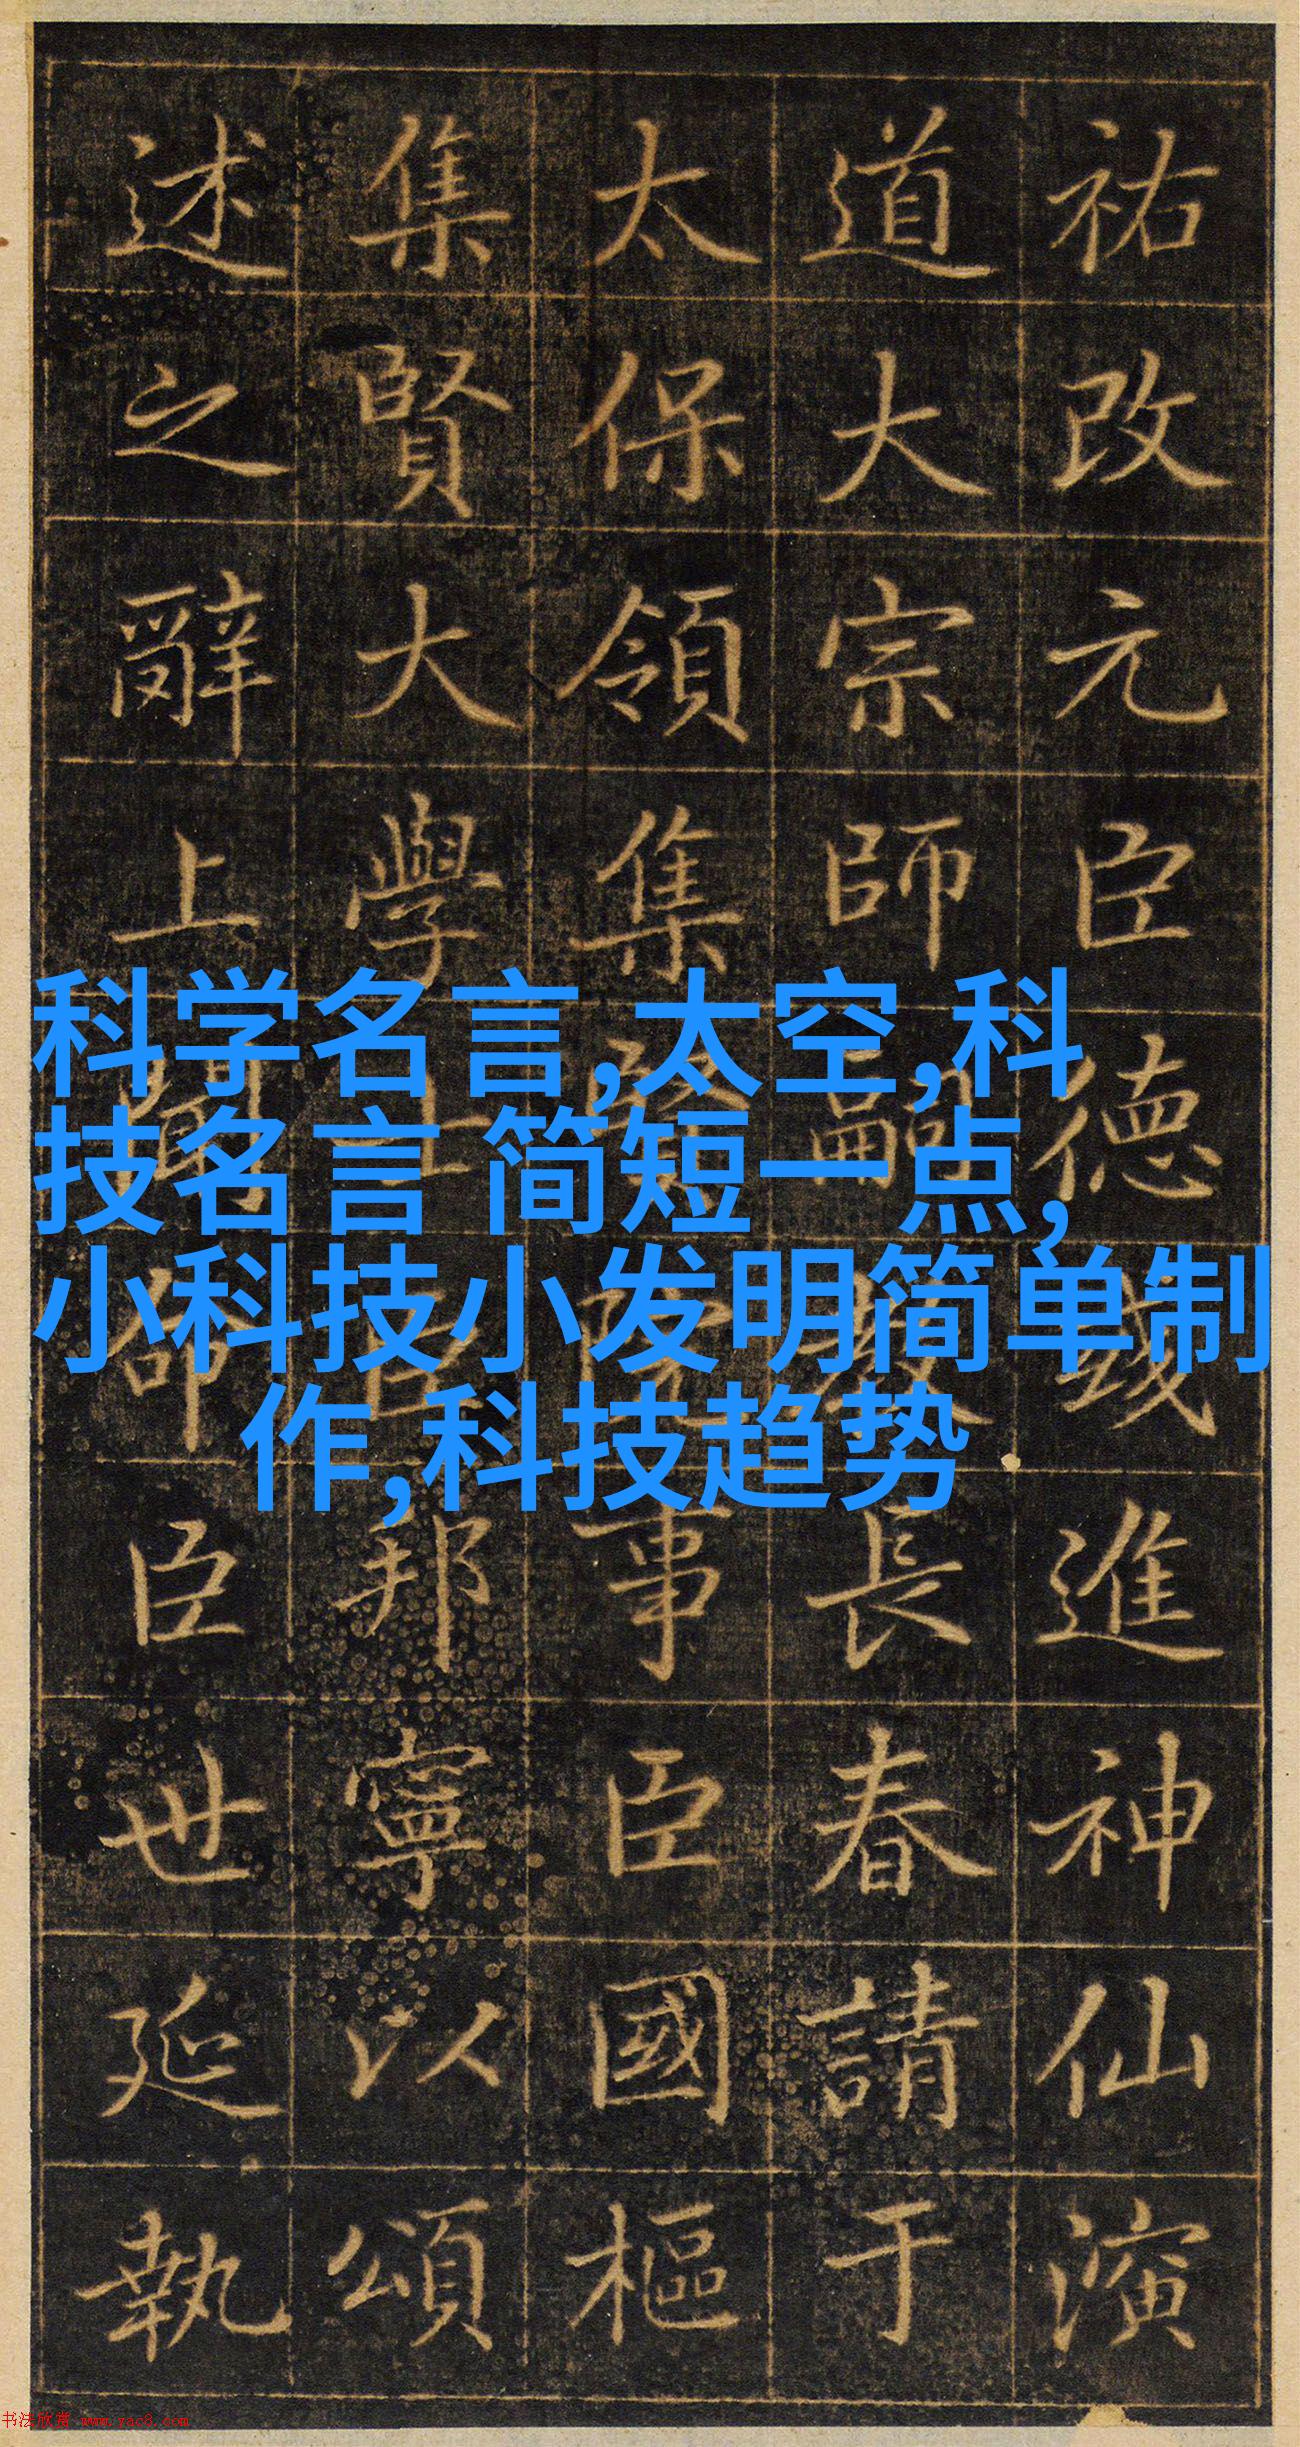 祐改元臣德進神仙演
道大宗師嗣長春請于
太保領集賢院事臣國樞
集賢大學士臣邦寧以頌
述之辭上聞命臣世延執
科学名言,太空,科
技名言 简短一点,
小科技小发明简单制
作,科技趋势
书法欣赏 www.yac8.com